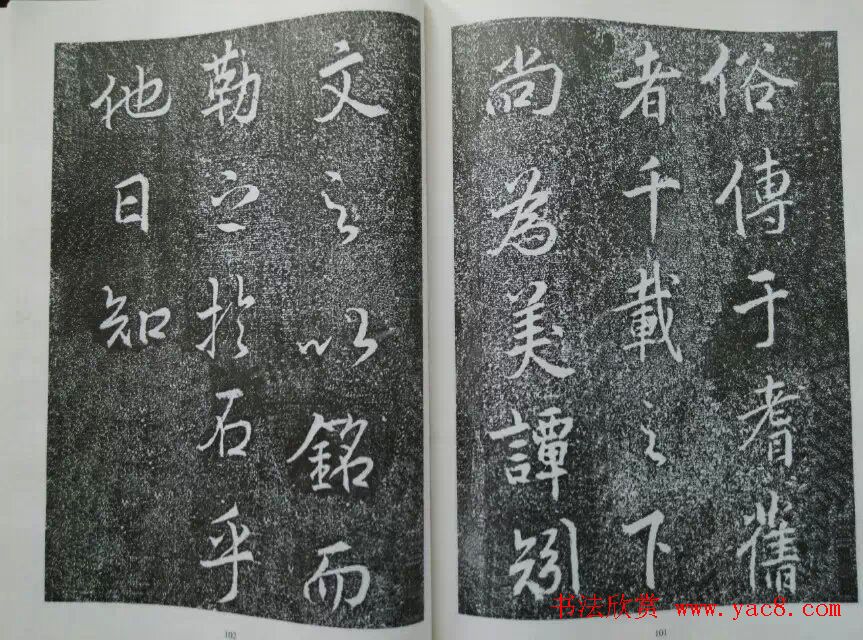 俗傳于耆舊
者千載之下
尚為美譚矧
文之以銘而
勒之於石乎
他日知
102
101
书法欣赏 www.yac8.com